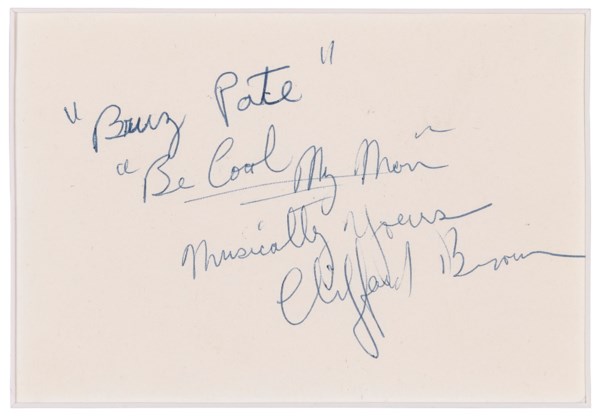 "Buz Pate"
"Be Cool My Man"
Musically Yours
Clifford Brown